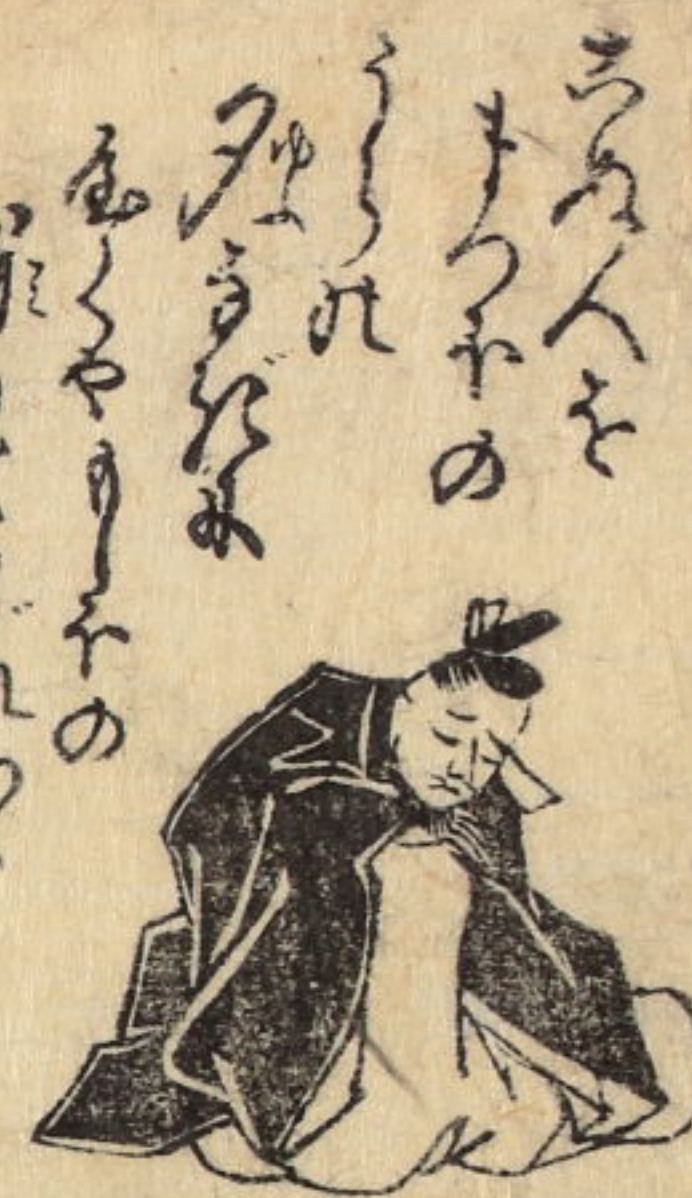 こぬ人を
まつほの
うらの
夕なぎに
ゆふ
やくやもしほの